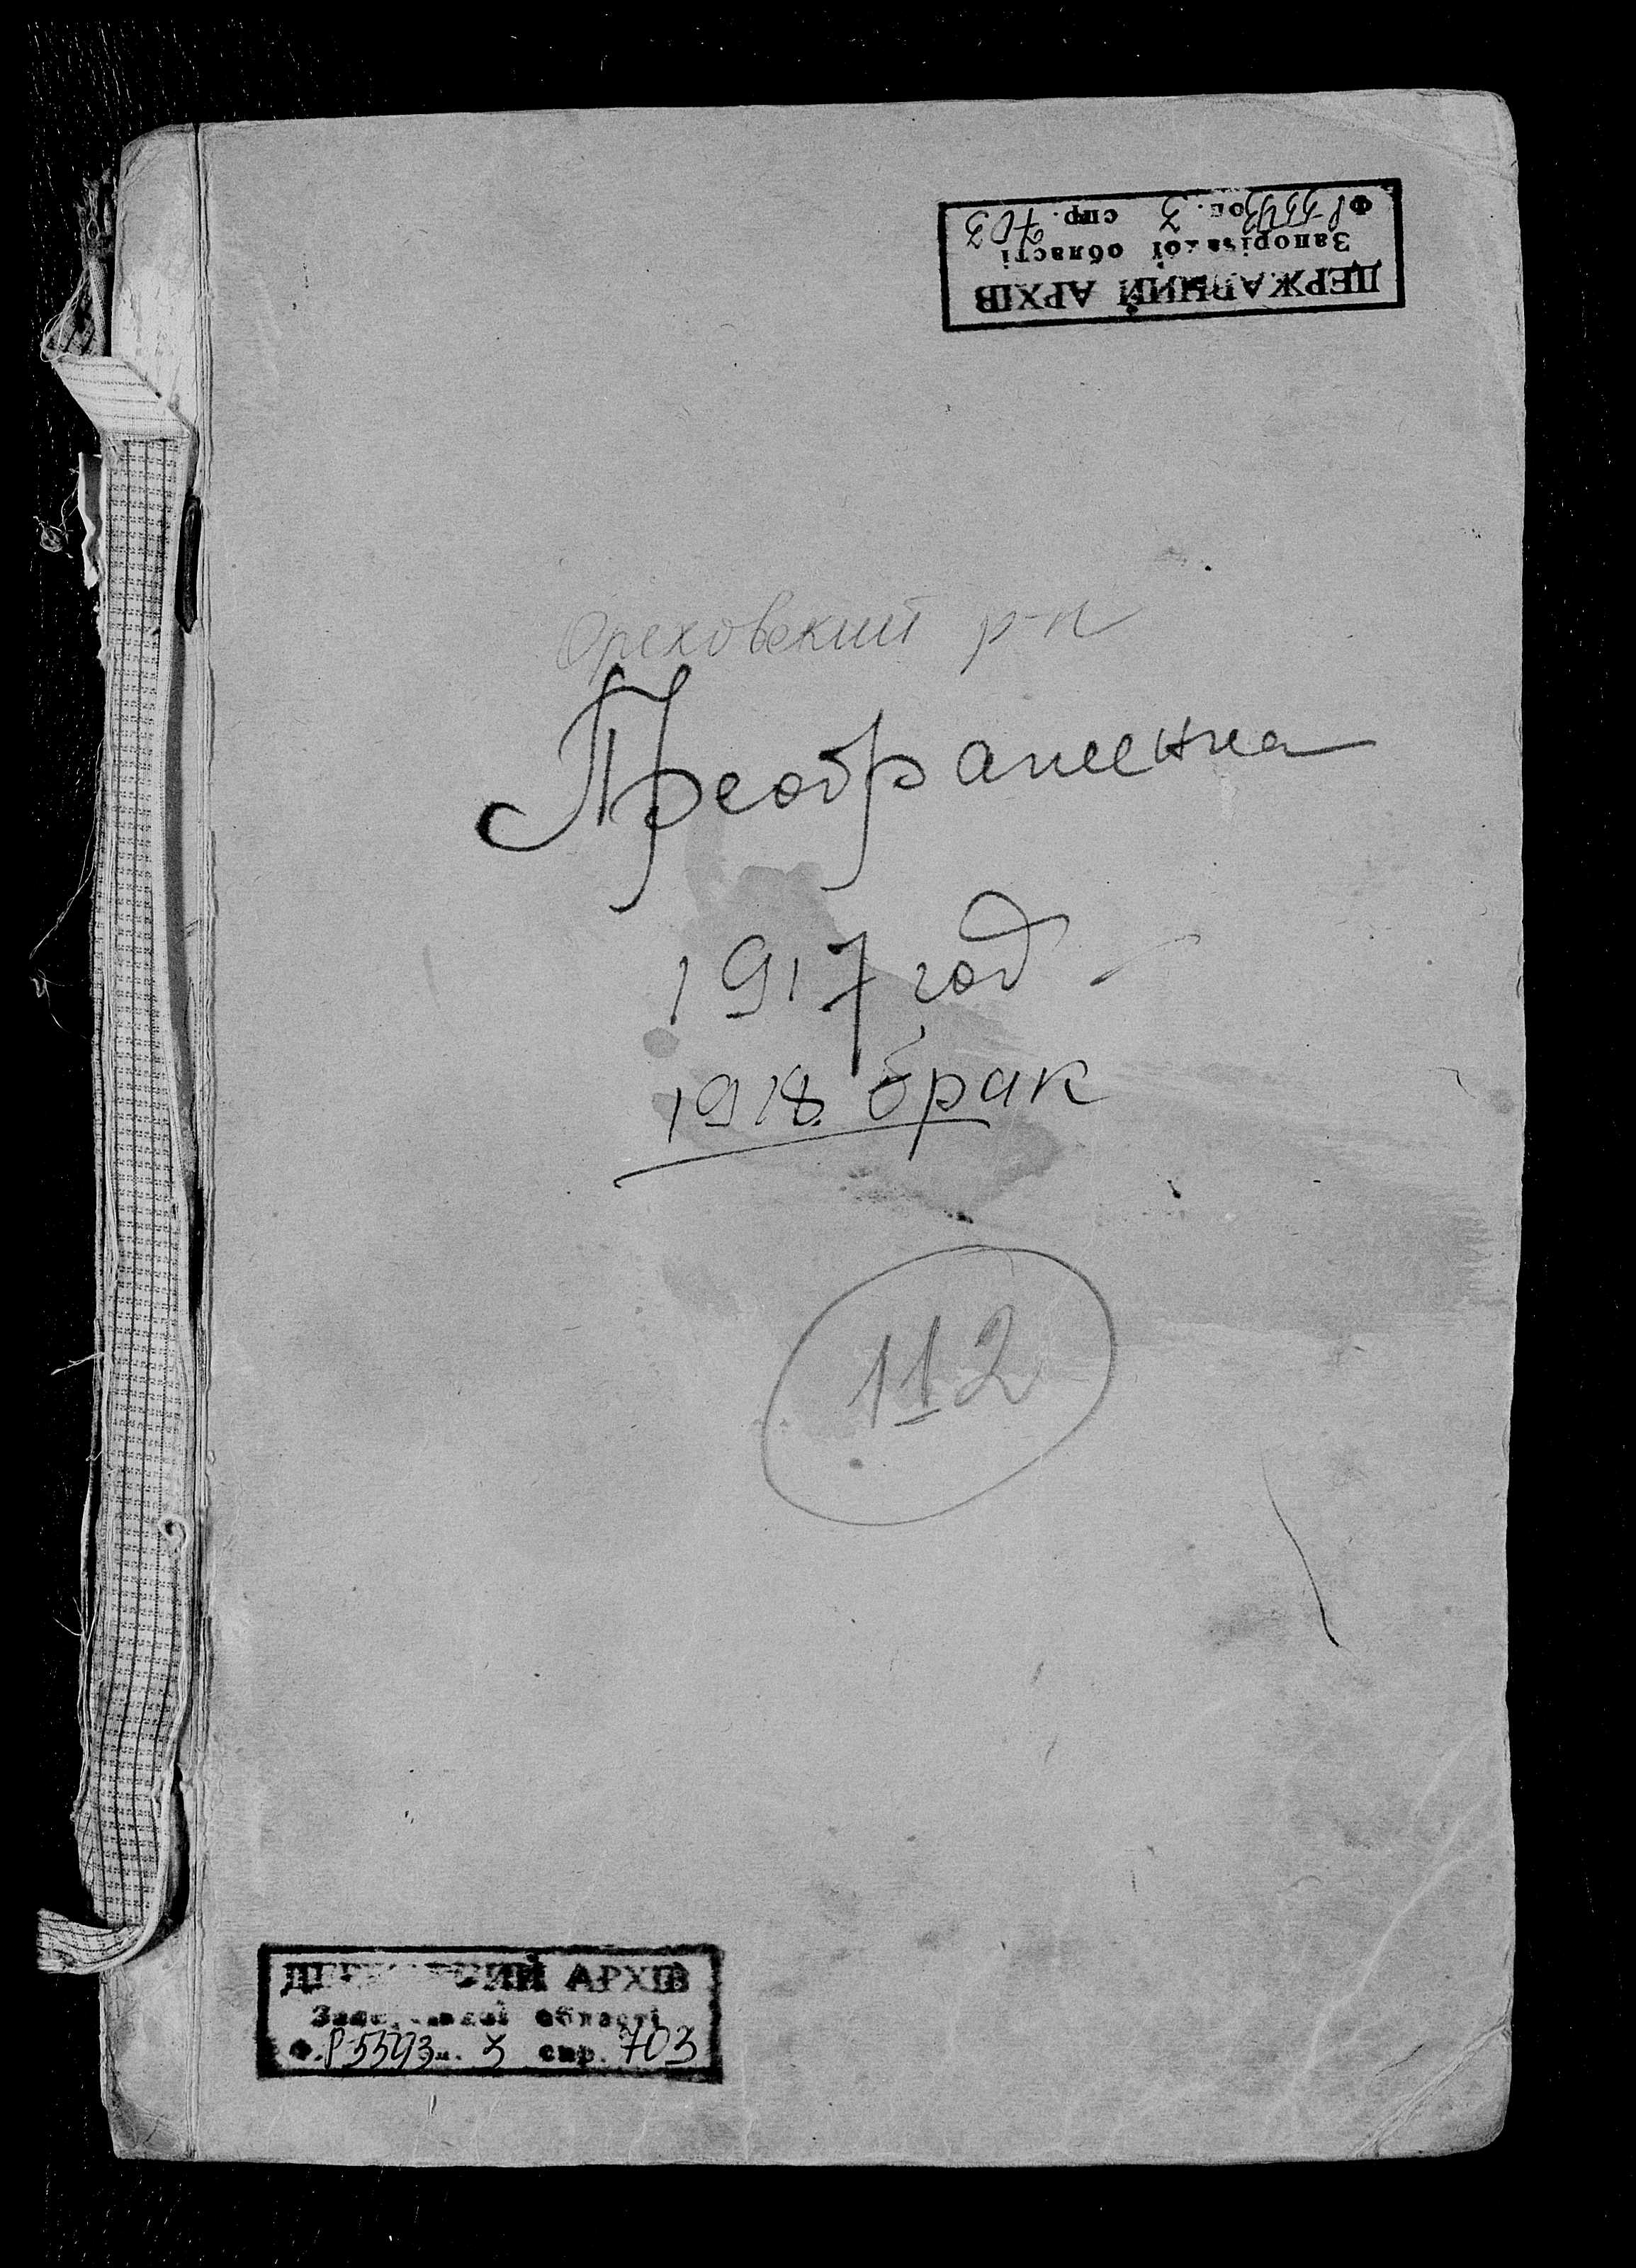 ДЕРЖАВНИЙ АРХІВ
Запорізької області
Ф. Р-5593 оп. 3 спр. 703
Ореховский р-н
Преображенка
1917 год
1918 брак
112
ДЕРЖАВНИЙ АРХІВ
Запорізької області
Ф. Р-5593 оп. 3 спр. 703